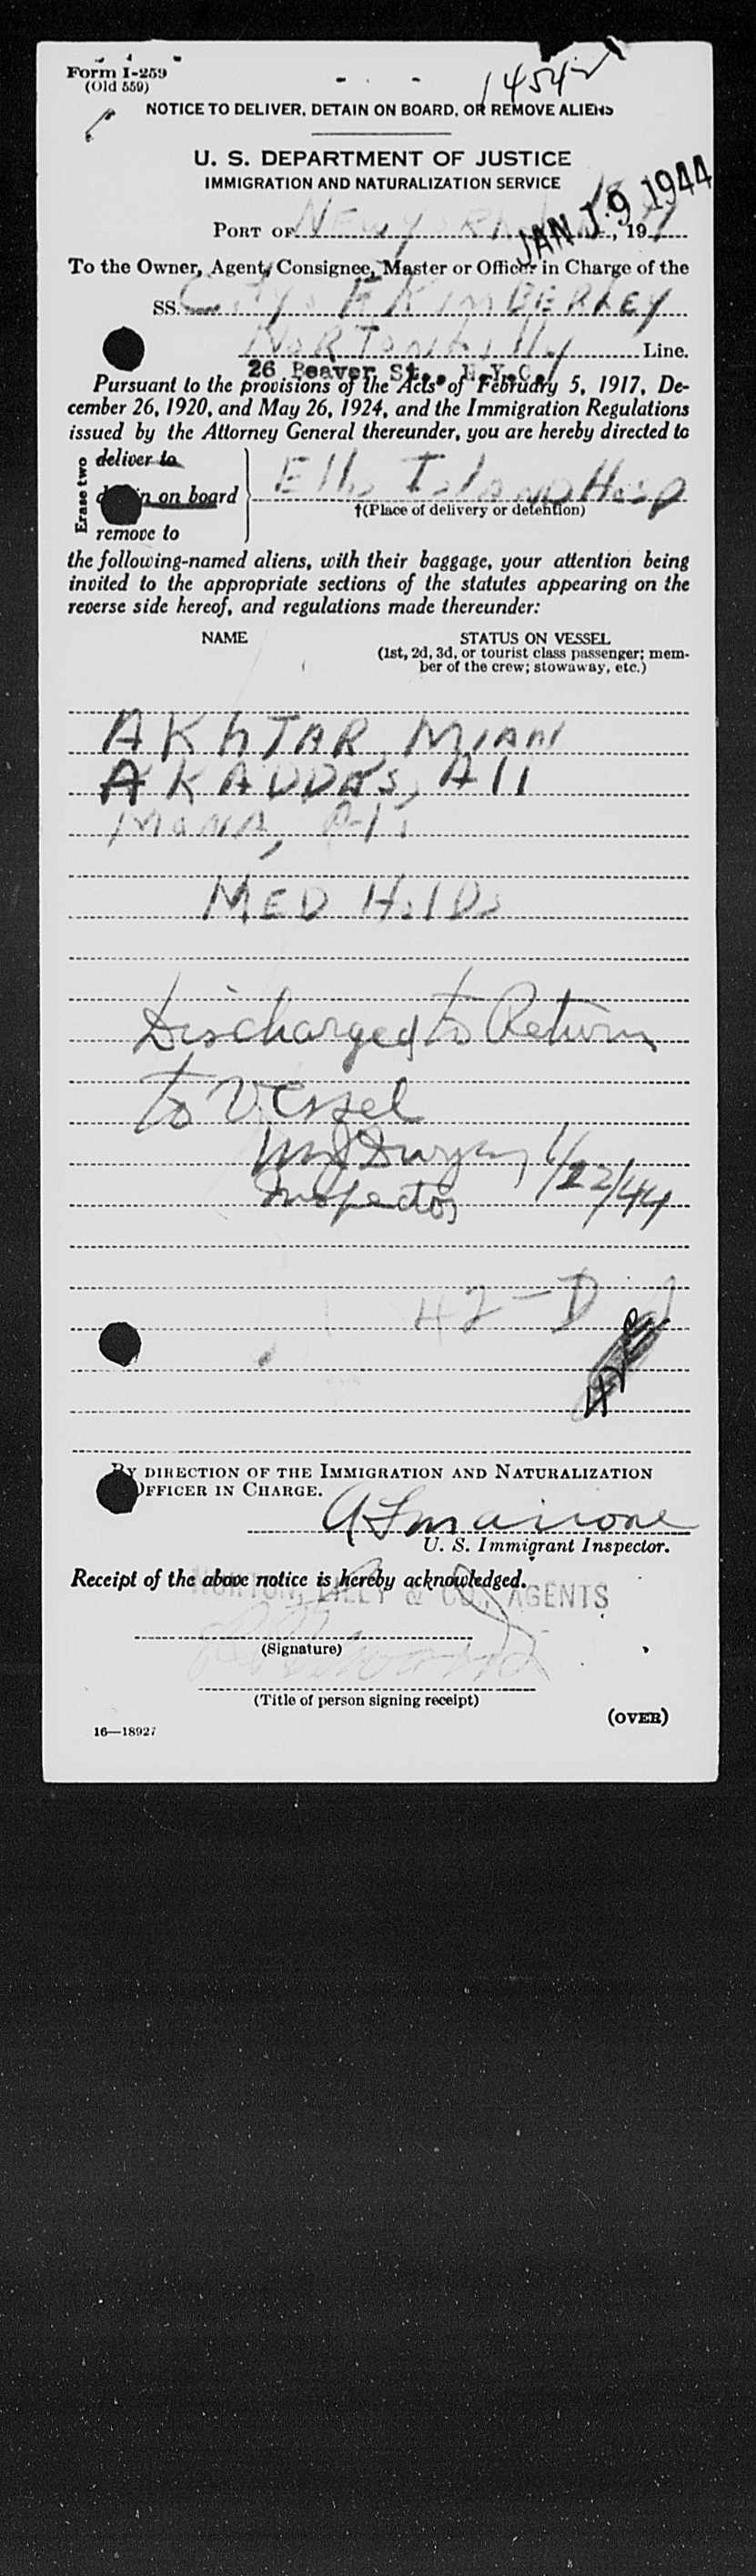 Form I-259
(Old 559)
NOTICE TO DELIVER, DETAIN ON BOARD, OR REMOVE ALIENS
U. S. DEPARTMENT OF JUSTICE
IMMIGRATION AND NATURALIZATION SERVICE
JAN 19 1944
PORT OF New York, 19
To the Owner, Agent, Consignee, Master or Officer in Charge of the
SS. City of KIMBERLEY
NORTON Lilly Line.
26 Beaver St., N.Y.C.
Pursuant to the provisions of the Acts of February 5, 1917, De-
cember 26, 1920, and May 26, 1924, and the Immigration Regulations
issued by the Attorney General thereunder, you are hereby directed to
Erase two
deliver to
on board
remove to
Ellis Island Hosp
†(Place of delivery or detention)
the following-named aliens, with their baggage, your attention being
invited to the appropriate sections of the statutes appearing on the
reverse side hereof, and regulations made thereunder:
NAME STATUS ON VESSEL
(1st, 2d, 3d, or tourist class passenger; mem-
ber of the crew; stowaway, etc.)
AKhTAR, MIAN
AKADDAS, Ali
MONA,
MED HolDs
Discharged to Return
to Vessel
1/22/44
Inspector
42-D
BY DIRECTION OF THE IMMIGRATION AND NATURALIZATION
OFFICER IN CHARGE.
U. S. Immigrant Inspector.
Receipt of the above notice is hereby acknowledged.
NORTON, LILLY & CO., AGENTS
(Signature)
(Title of person signing receipt)
(OVER)
16—18927